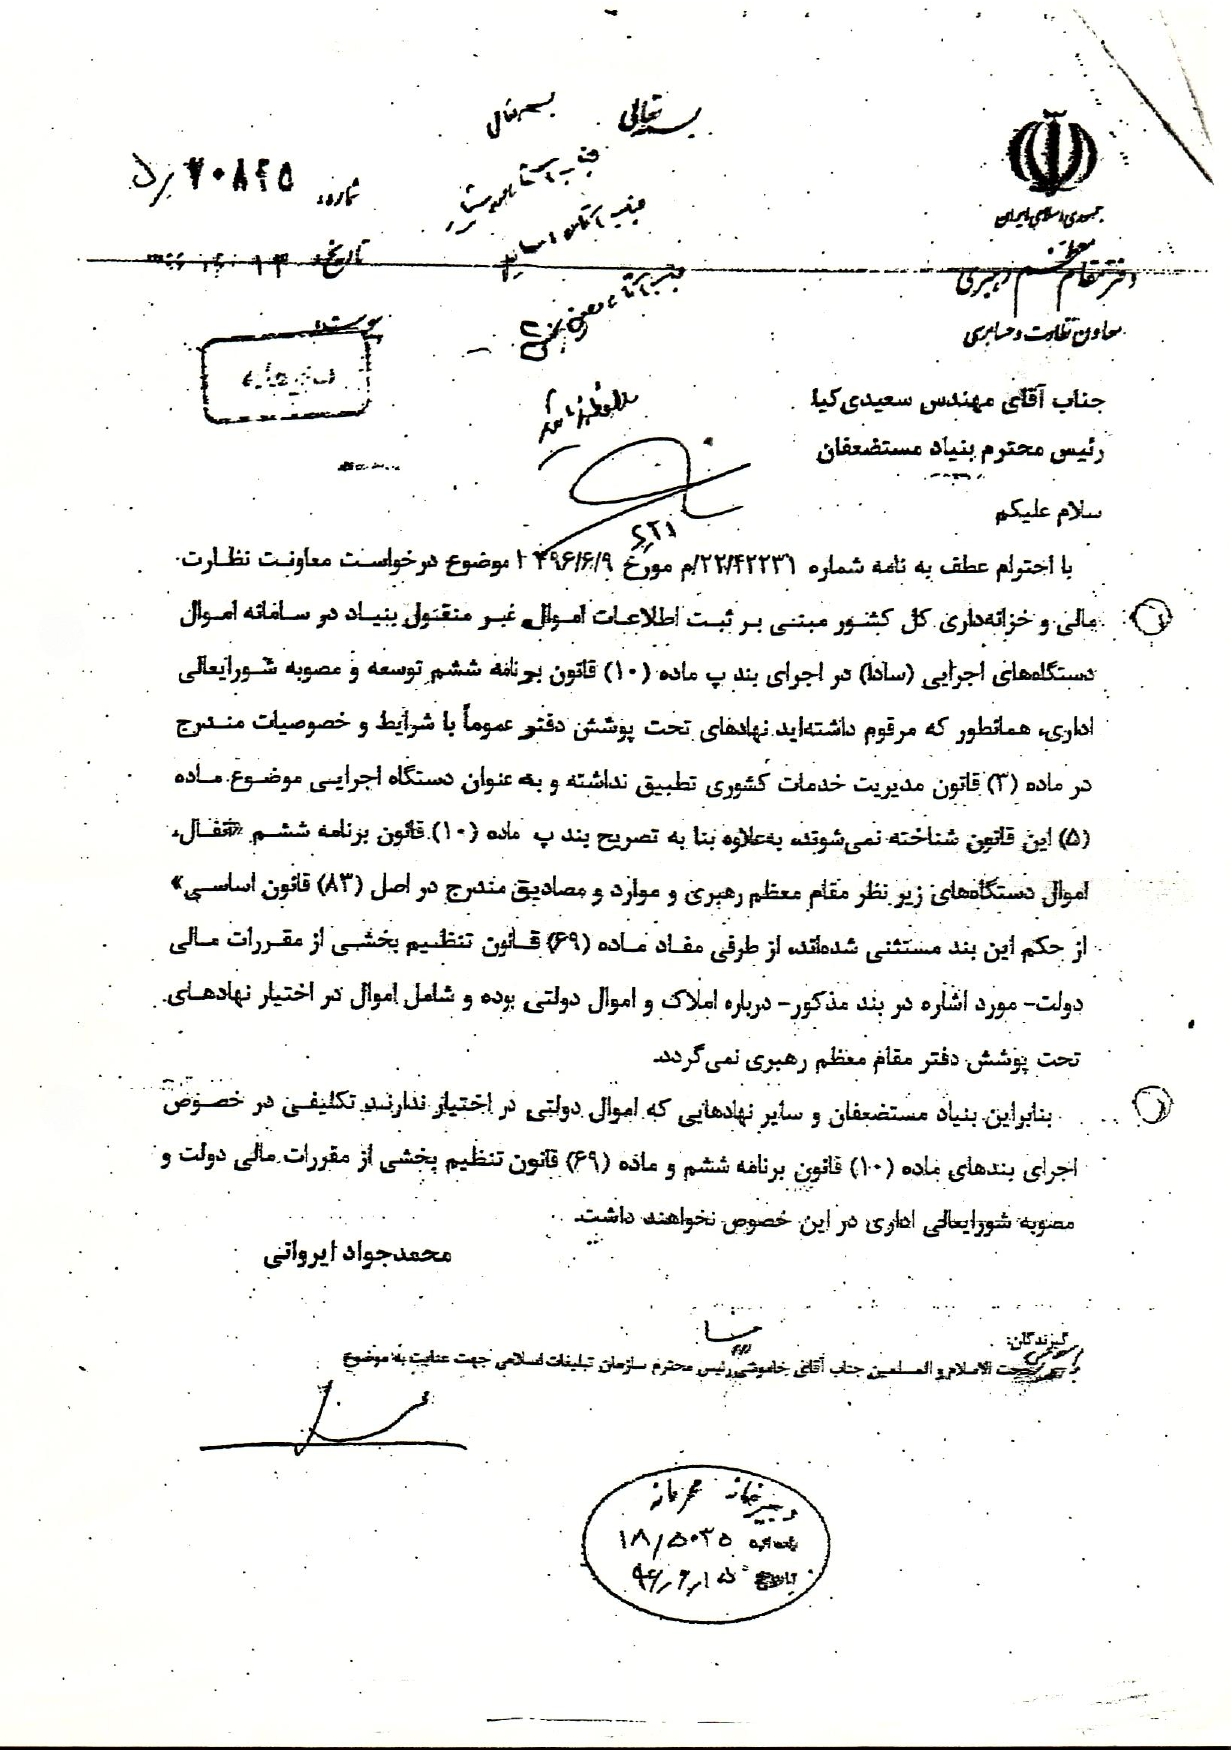 بسمه تعالی
جمهوری اسلامی ایران
دفتر مقام معظم رهبری
معاون نظارت و حسابرسی
شماره:
تاریخ:
پیوست:
جناب آقای مهندس سعیدی‌کیا
رئیس محترم بنیاد مستضعفان
سلام علیکم
با احترام عطف به نامه شماره ۲۲/۴۲۲۳۱/م مورخ ۱۳۹۶/۶/۹ موضوع درخواست معاونت نظارت
مالی و خزانه‌داری کل کشور مبتنی بر ثبت اطلاعات اموال غیر منقول بنیاد در سامانه اموال
دستگاه‌های اجرایی (سادا) در اجرای بند پ ماده (۱۰) قانون برنامه ششم توسعه و مصوبه شورایعالی
اداری، همانطور که مرقوم داشته‌اید نهادهای تحت پوشش دفتر عموماً با شرایط و خصوصیات مندرج
در ماده (۳) قانون مدیریت خدمات کشوری تطبیق نداشته و به عنوان دستگاه اجرایی موضوع ماده
(۵) این قانون شناخته نمی‌شوند، به‌علاوه بنا به تصریح بند پ ماده (۱۰) قانون برنامه ششم «انفال،
اموال دستگاه‌های زیر نظر مقام معظم رهبری و موارد و مصادیق مندرج در اصل (۸۳) قانون اساسی»
از حکم این بند مستثنی شده‌اند، از طرفی مفاد ماده (۶۹) قانون تنظیم بخشی از مقررات مالی
دولت- مورد اشاره در بند مذکور- درباره املاک و اموال دولتی بوده و شامل اموال در اختیار نهادهای
تحت پوشش دفتر مقام معظم رهبری نمی‌گردد.
بنابراین بنیاد مستضعفان و سایر نهادهایی که اموال دولتی در اختیار ندارند تکلیفی در خصوص
اجرای بندهای ماده (۱۰) قانون برنامه ششم و ماده (۶۹) قانون تنظیم بخشی از مقررات مالی دولت و
مصوبه شورایعالی اداری در این خصوص نخواهند داشت.
محمدجواد ایروانی
گیرندگان:
حجت الاسلام و المسلمین جناب آقای خاموشی رئیس محترم سازمان تبلیغات اسلامی جهت عنایت به موضوع
دبیرخانه محرمانه
شماره ۱۸/۵۰۳۵
تاریخ ۹۶/۶/۱۵